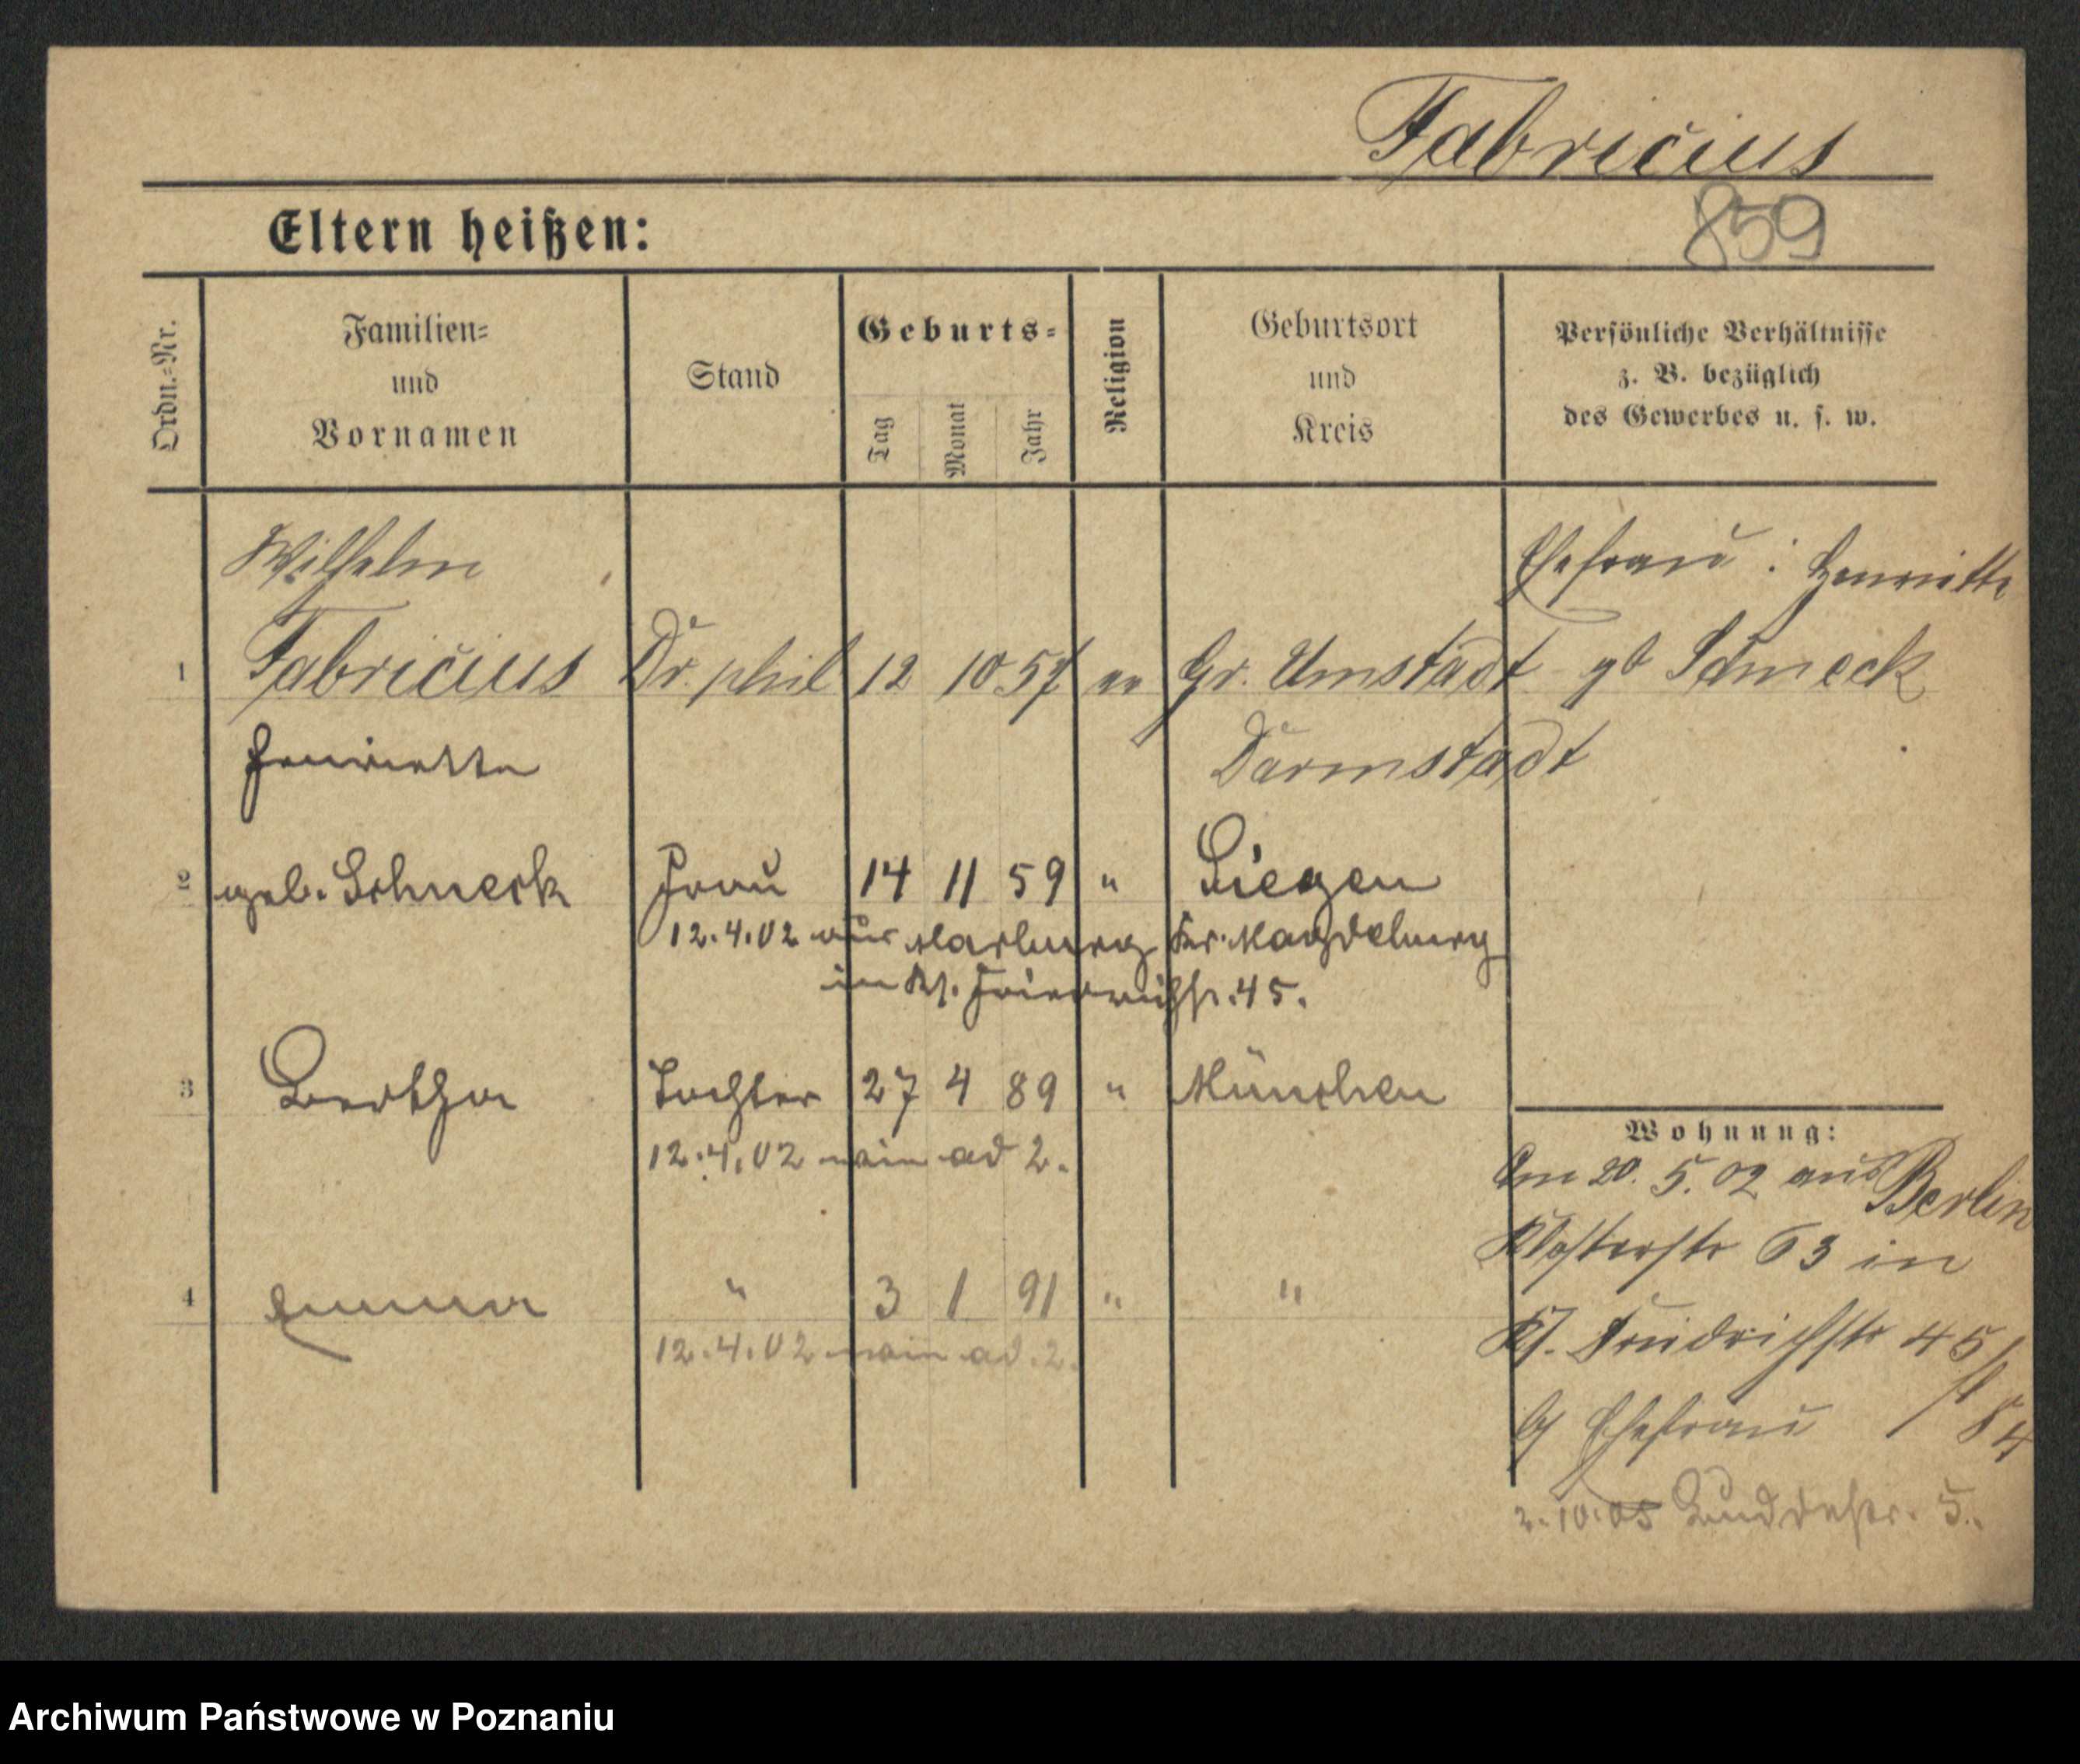 Fabricius
859
Eltern heißen:
Ordn.=Nr.
Familien=
und
Vornamen
Stand
Geburts=
Tag
Monat
Jahr
Religion
Geburtsort
und
Kreis
Persönliche Verhältnisse
z. B. bezüglich
des Gewerbes u. s. w.
Wilhelm
Ehefrau : Henriette
1 Fabricius Dr. phil 12 10 57 ev Gr. Umstadt gb Schneck
Henriette Darmstadt
2 geb. Schneck Frau 14 11 59 " Siegen
12.4.02 aus Marburg Kr. Magdeburg
in Kl. Friedrichstr. 45.
3 Bertha Tochter 27 4 89 " München
12.4.02 ad 2.
4 Emma " 3 1 91 " "
12.4.02 ad. 2.
Wohnung:
Am 20. 5. 02 aus Berlin
Klosterstr 63 in
Kl. Friedrichstr 45
Ehefrau
84
2.10.05 5.